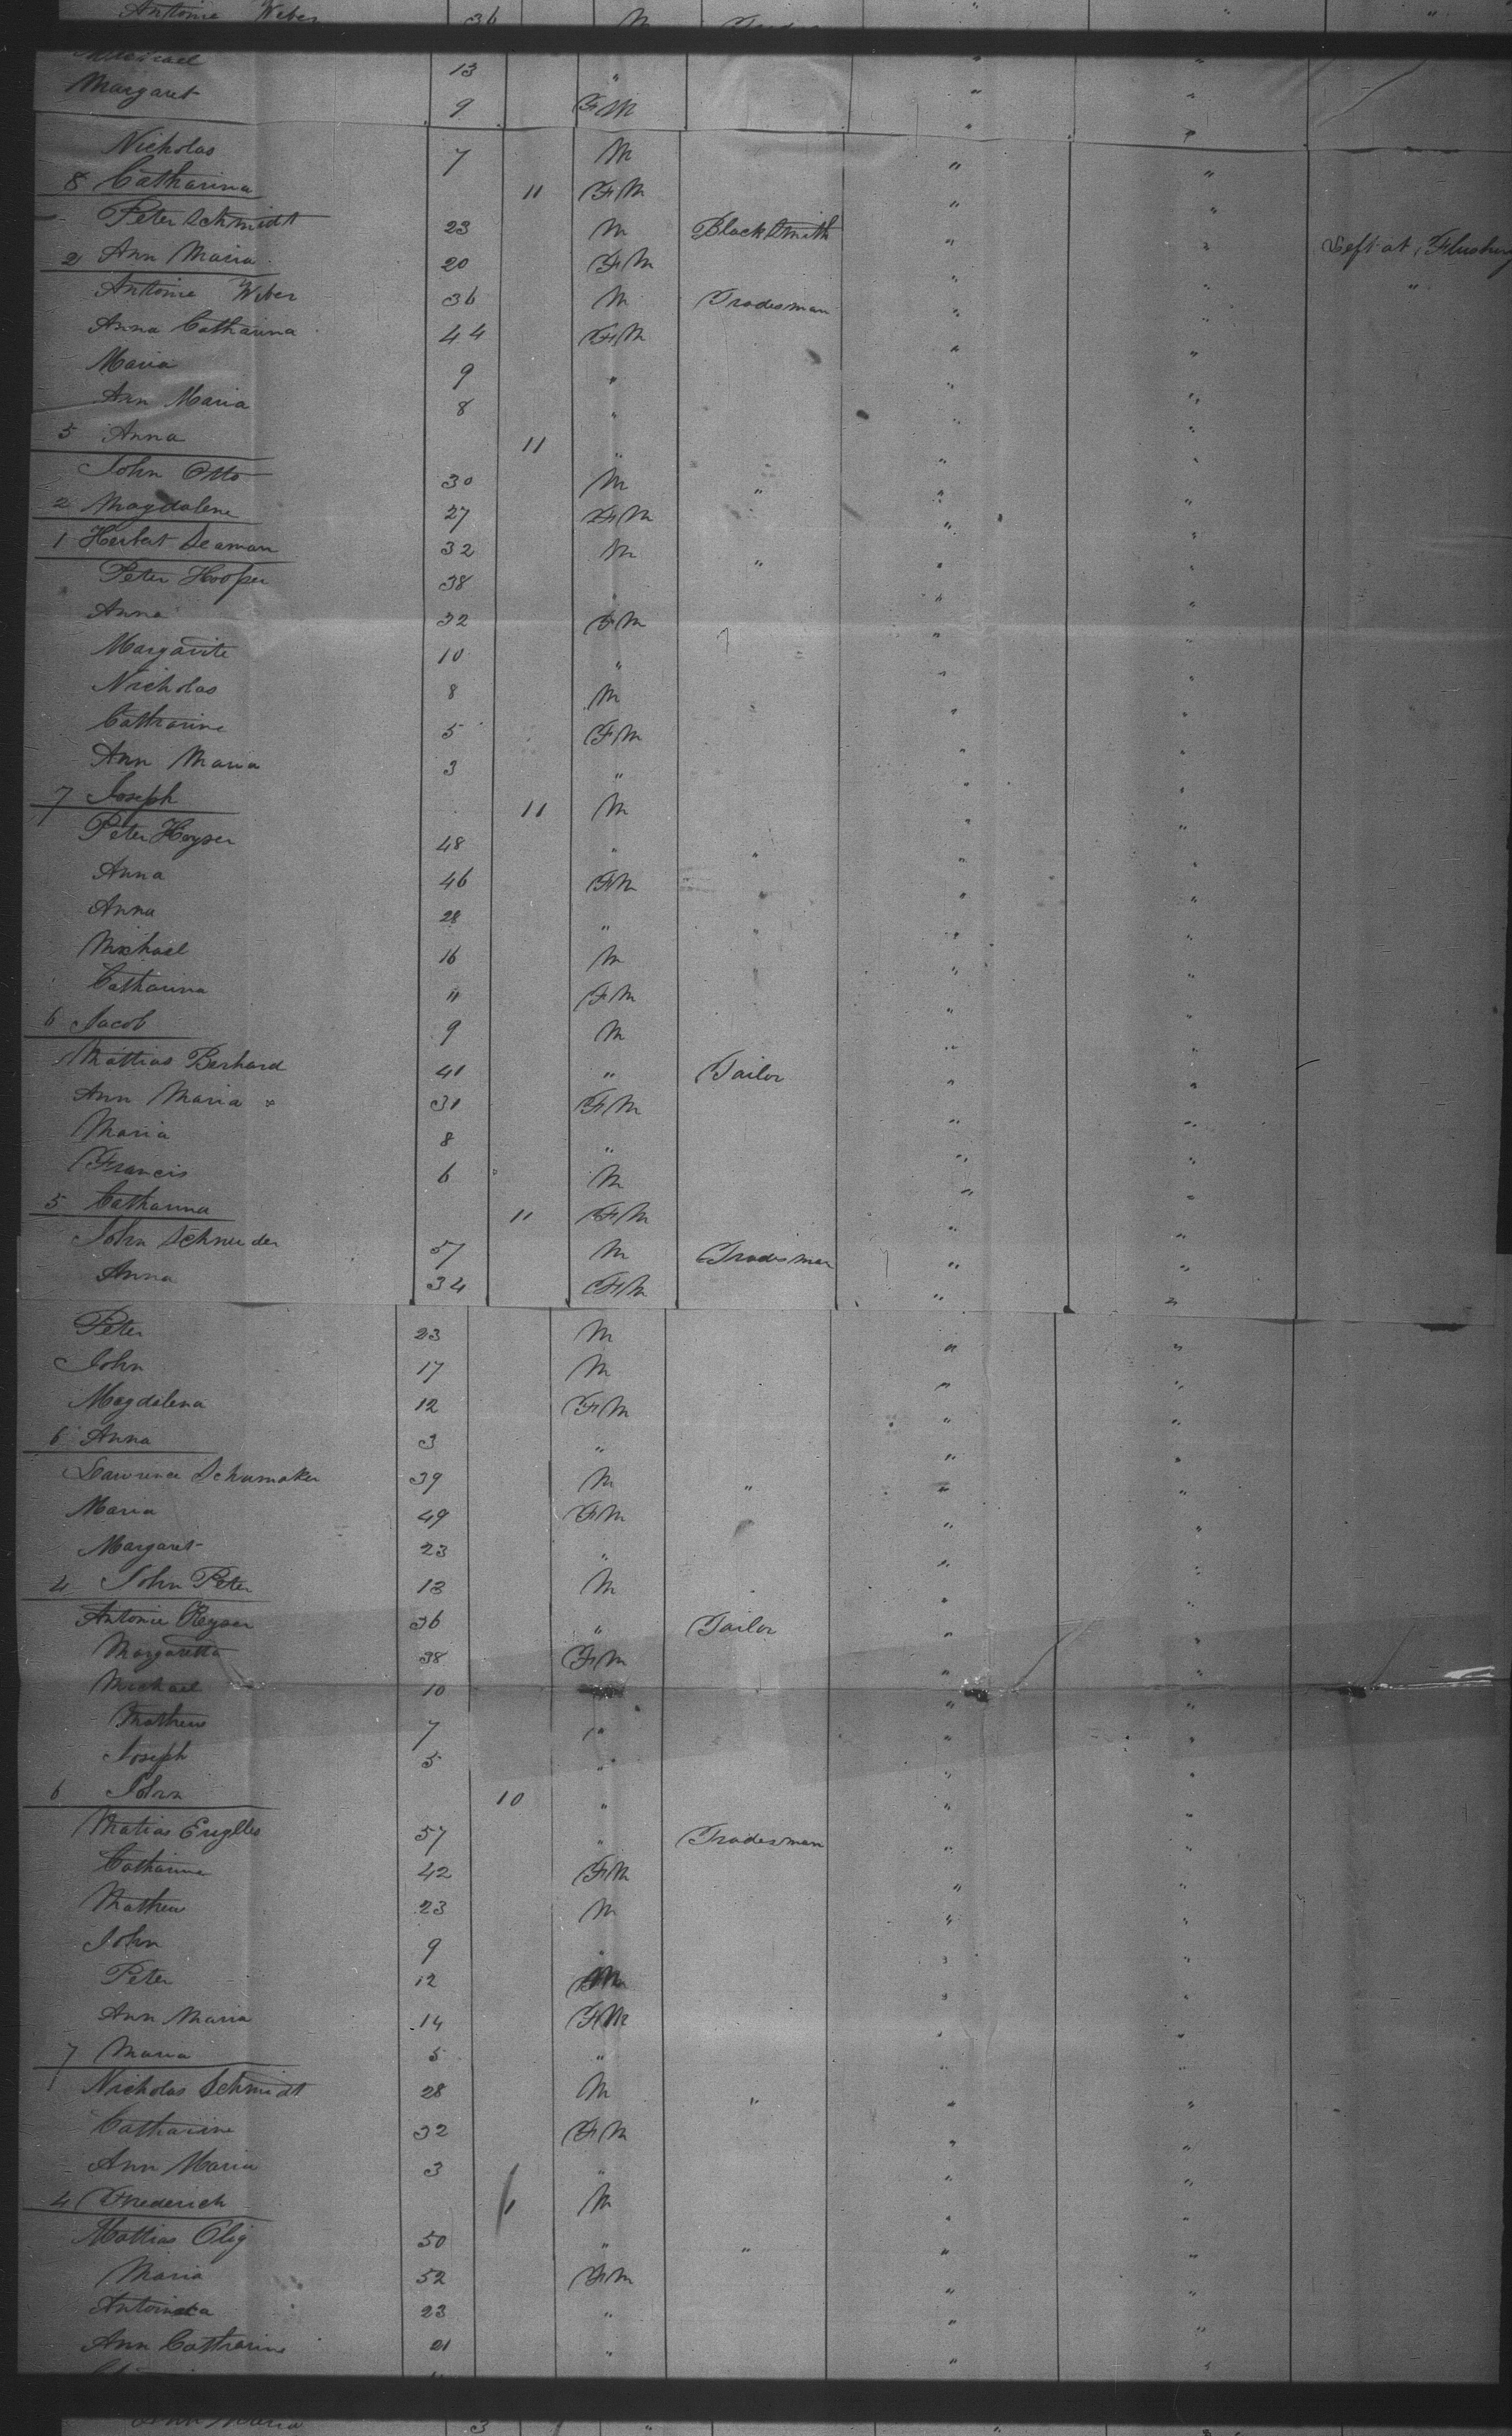 Antonie Weber 36 M
13 "
Margaret 9 FM " "
Nicholas 7 M " "
8 Catharina 11 FM " "
Peter Schmidt 23 M Blacksmith " " Left at Flushing
2 Ann Maria 20 FM " " "
Antonie Weber 36 M Tradesman " "
Anna Catharina 44 FM " "
Maria 9 " " "
Ann Maria 8 " " "
5 Anna 11 " " "
John Otto 30 M " " "
2 Magdalene 27 FM " "
1 Herbert Seaman 32 M " " "
Peter Hooper 38 " " "
Anna 32 FM " "
Margarite 10 " " "
Nicholas 8 M " "
Catharine 5 FM " "
Ann Maria 3 " " "
7 Joseph 11 M " "
Peter Heyser 48 " " " "
Anna 46 FM " " "
Anna 28 " " " "
Michael 16 M " "
Catharina 11 FM " "
6 Jacob 9 M " "
Mattias Berhard 41 " Tailor " "
Ann Maria 31 FM " "
Maria 8 " " "
Francis 6 M " "
5 Catharina 11 FM " "
John Schneider 57 M Tradesman " "
Anna 34 FM " "
Peter 23 M " "
John 17 M " "
Magdalena 12 FM " "
6 Anna 3 " " "
Lawrence Schumaker 39 M " " "
Maria 49 FM " "
Margaret 23 " " "
4 John Peter 13 M " "
Antonie Reyser 36 " Tailor " "
Margaretta 38 FM " "
Michael 10 " "
Mathew 7 " " "
Joseph 5 " " "
6 John 10 " " "
Matias 57 " Tradesman " "
Catharine 42 FM " "
Mathew 23 M " "
John 9 " " "
Peter 12 M " "
Ann Maria 14 FM " "
7 Maria 5 " " "
Nicholas Schmidt 28 M " " "
Catharine 32 FM " "
Ann Maria 3 " " "
4 Frederich M " "
Mattias Olig 50 " " " "
Maria 52 FM " "
Antoinetta 23 " " "
Ann Catharine 21 " " "
Ann Maria 3 " " "